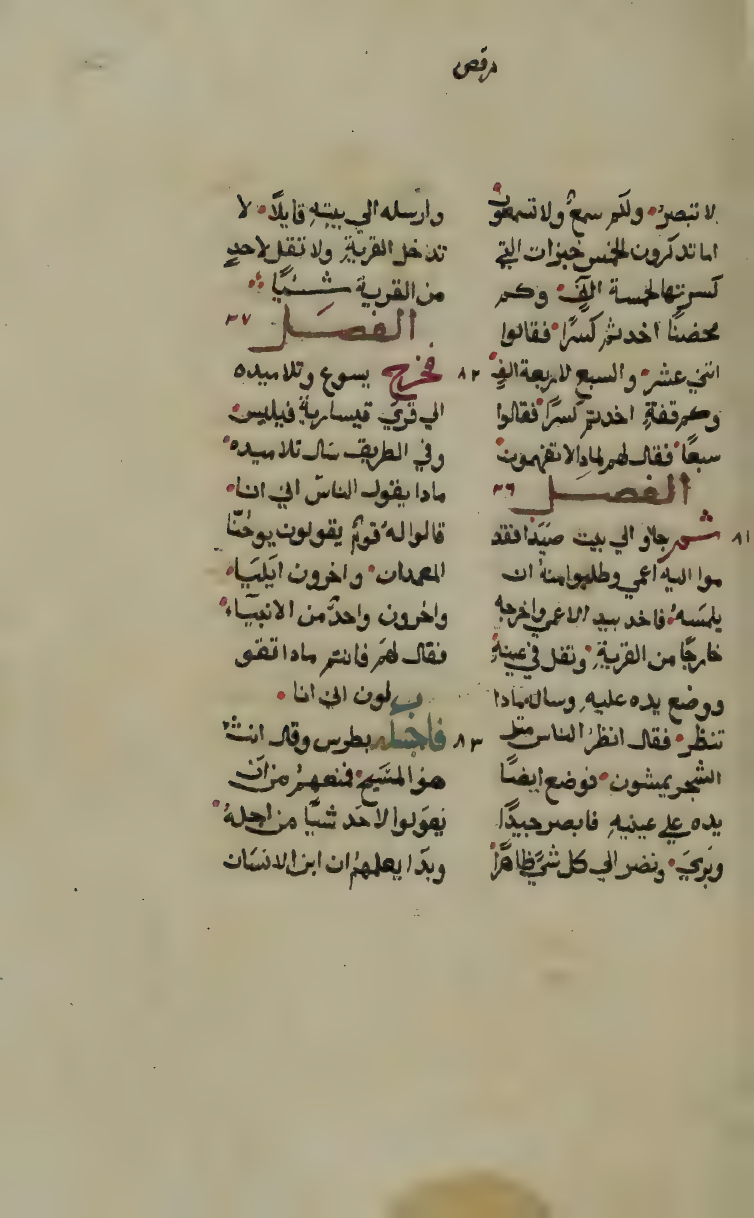 مرقص
لا تبصر ولكم سمع ولا تسمعون
اما تدكرون الخمس خبزات التي
كسرتها لخمسة الف وكم
محضنًا اخدتم كسرًا فقالوا
اثني عشر والسبع لاربعة الف
وكم قفة اخدتم كسرًا فقالوا
سبعًا فقال لهم لمادا لا تفهمون
الفصل ٣٦
٨١ ثم جاو الي بيت صيدا فقد
موا اليه اعمي وطلبوا منه ان
يلمسه فاخد بيد الاعمي واخرجه
خارجًا من القرية وتفل في عينيه
ووضع يده عليه وساله مادا
تنظر فقال انظر الناس مثل
الشجر يمشون فوضع ايضًا
يده علي عينيه فابصر جيدًا
وبري ونضر الي كل شي ظاهرًا
وارسله الي بيته قايلًا لا
تدخل القرية ولا تقل لاحد
من القرية شيًا
الفصل ٣٧
٨٢ فخرج يسوع وتلاميده
الي قري قيسارية فيلبس
وفي الطريق سال تلاميده
مادا يقول الناس اني انا
قالوا له قوم يقولون يوحنا
المعمدان واخرون ايليا
واخرون واحد من الانبياء
فقال لهم فانتم مادا تقو
لون اني انا
٨٣ فاجاب بطرس وقال انت
هو المسيح فنعهم من ان
يقولوا لاحد شيًا من اجله
وبدا يعلمهم ان ابن الانسان